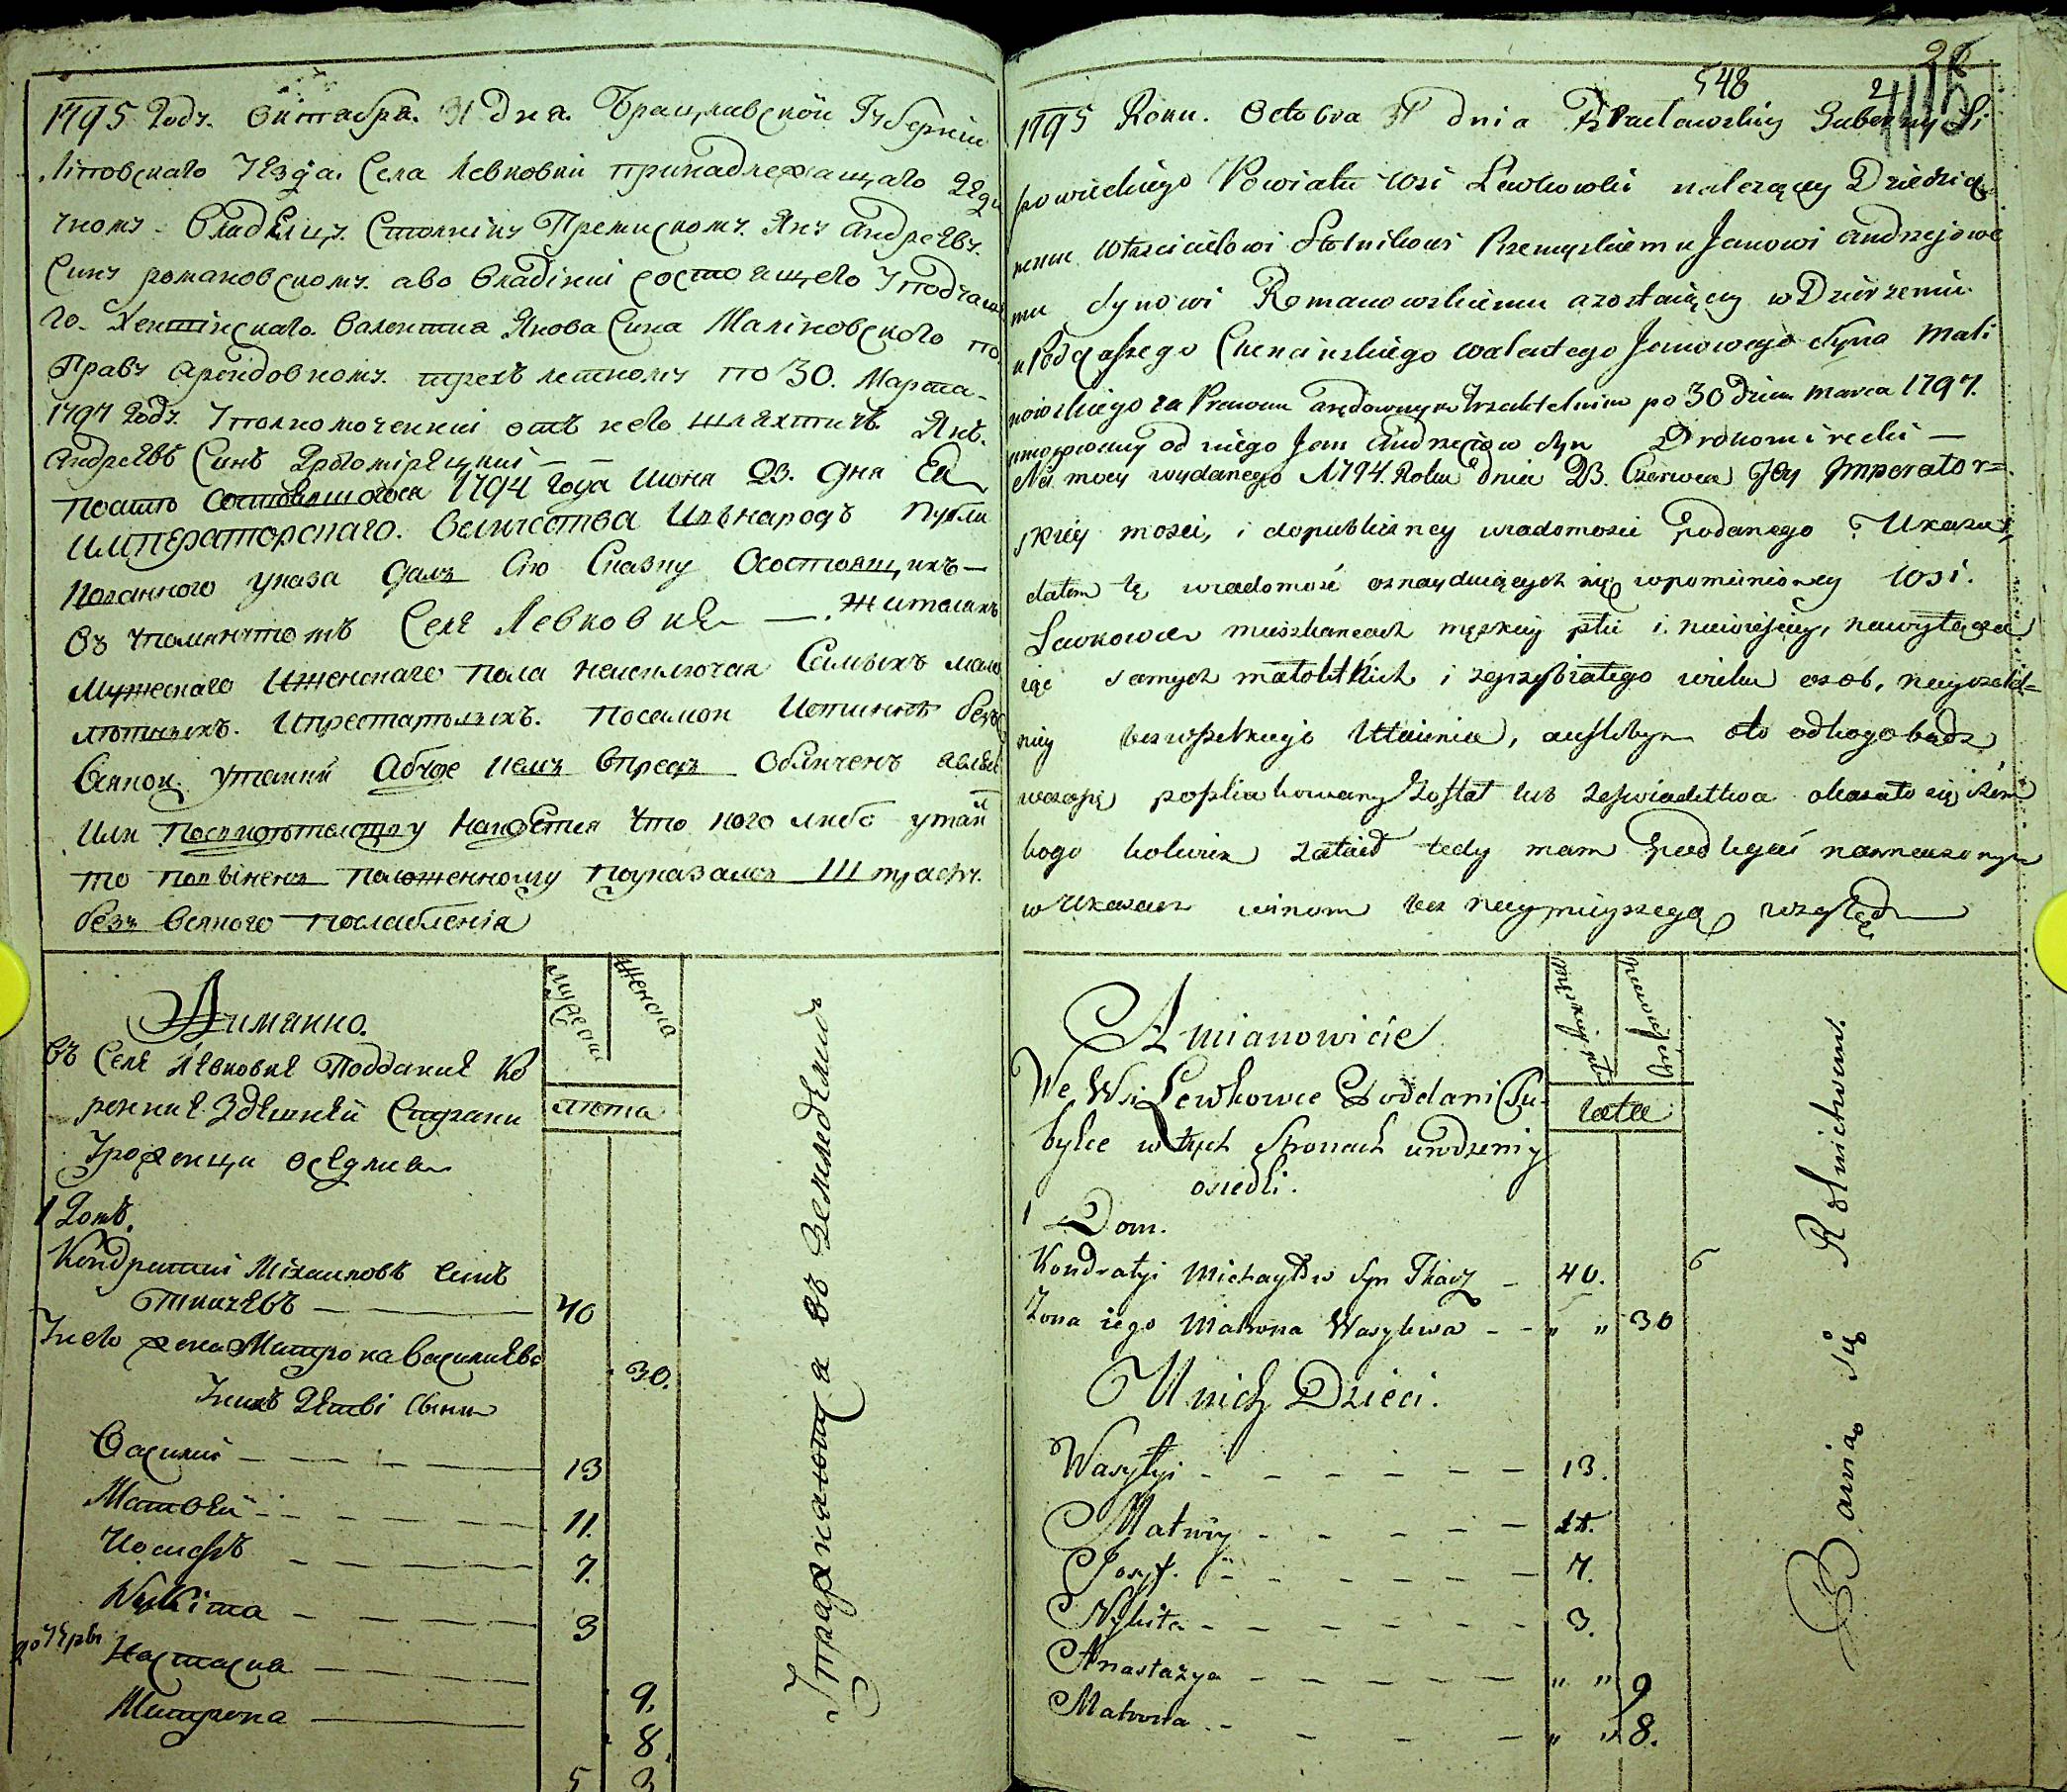 1795 Году. Октабра. 31 дна. Брацлавской Губерніи
Липовскаго Уезда. Села Левковки принадлежащаго Дѣди
чному Владѣлцу. Столніку Премискому. Яну Андрѣеву.
Сину романовскому. аво владініи состоящего У подчаш
го. Хентінскаго. Валентиа Янова Сина Маліновского по
Праву арендовному. трехъ летному по 30. Марта
1797 Году. Уполномоченній отъ него шляхтичъ Янъ.
Андрѣевъ Синъ Дрогомірецкій — —
Поситѣ состоявшогося 1794 года Июня 23. дня Ея
ИМПЕРАТОРСКАГО. Величества Извнародъ Публи
кованного указа далъ Сію Сказку Осостоящихъ —
Въ упомянутомъ Селѣ Левковкѣ — Жителяхъ
Мужескаго Иженскаго пола неисключая Самыхъ мало
лѣтныхъ. Ипрестарѣлыхъ. Посамой Истиннѣ безъ
Всякой утайки Абуде кемъ впредъ Обличенъ явлюсь
Или Посвидѣтелству Найдется что кого либо утаи
то повиненъ положенному поуказамъ Штрафу.
безъ всякого послабленія
548
1795 Roku. Octobra 31 dnia Bracławskiey Guberny Li
powieckiego Powiatu wsi Lewkowki należącey Dziedzicz
nemu Włascicielowi Stolnikowi Przemyskiemu Janowi Andrzejowe
mu Synowi Romanowskiemu a zostaiącey w Dzierżeniu
u Podczaszego Chęcinskiego Walentego Janowego Syna Mali
nowskiego za Prawem Arędownym Trzechletnim po 30 dzien Marca 1797.
umocowany od niego Jan Andrzeiow Syn Drohomirecki —
Na mocy wydanego 1794. Roku dnia 23. Czerwca Jey Imperator=
skiey mosci, i dopubliczney wiadomosci podanego Ukazu,
dałem tę wiadomość oznayduiących się wpomienioney wsi.
Lewkowce mieszkancach męzkiey płci i niewiesciey, niewyłącza
iąc samych małoletnich i zgrzybiałego wieku osob, nayrzetel=
niey bez wszelkiego Utaienia, a iesliby oto odkogo bądz
poszlakowany został lub zeswiadectwa okazało się iżem
kogo kolwiek zataił tedy mam podlegać naznaczonym
w Ukazach winom bez naymnieyszego względu
Аимянно.
въ Селѣ Левковкѣ Подданиѣ Ко
реннѣ Здѣшней Сторони
Уроженци осѣдлиа
мужеска
женска
лѣта
1 Домъ.
Кондратій Міхаиловъ синъ
Ткачѣвъ — 40
Унего жена Матрона Василиѣва 30.
Унихъ Дѣтві Сини
Василій — 13
Матвѣй — 11.
Иосифъ — 7.
Никіта — 3
дочѣри Настасиа — 9.
Матрона — 8.
5 3
Упражняютца въ Земледелиі
A mianowicie
We Wsi Lewkowce Poddani Tu-
bylce w tych Stronach urodzeni y
osiedli.
lata
1 Dom.
Kondratyi Michayłow Syn Tkacz — 40. 6
Zona iego Matrona Wasylowa — — „ „ 30
U nich Dzieci.
Wasylyi — 13.
Matwiy — 11.
Josyf. — 7.
Nykita — 3.
Anastazya — „ „ 9
Matrona — „ „ 8.
Bawią się Rolnictwem.